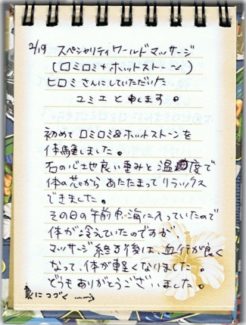 2/19 スペシャリティワールドマッサージ
(ロミロミ+ホットストーン)
ヒロミさんにしていただいた
ユミエと申します。
初めてロミロミ&ホットストーンを
体験しました。
石の心地良い重みと温度で
体の芯からあたたまってリラックス
できました。
その日の午前中海に入っていたので
体が冷えていたのですが
マッサージ終了後は、血行が良く
なって、体が軽くなりました。
どうもありがとうございました。
裏につづく